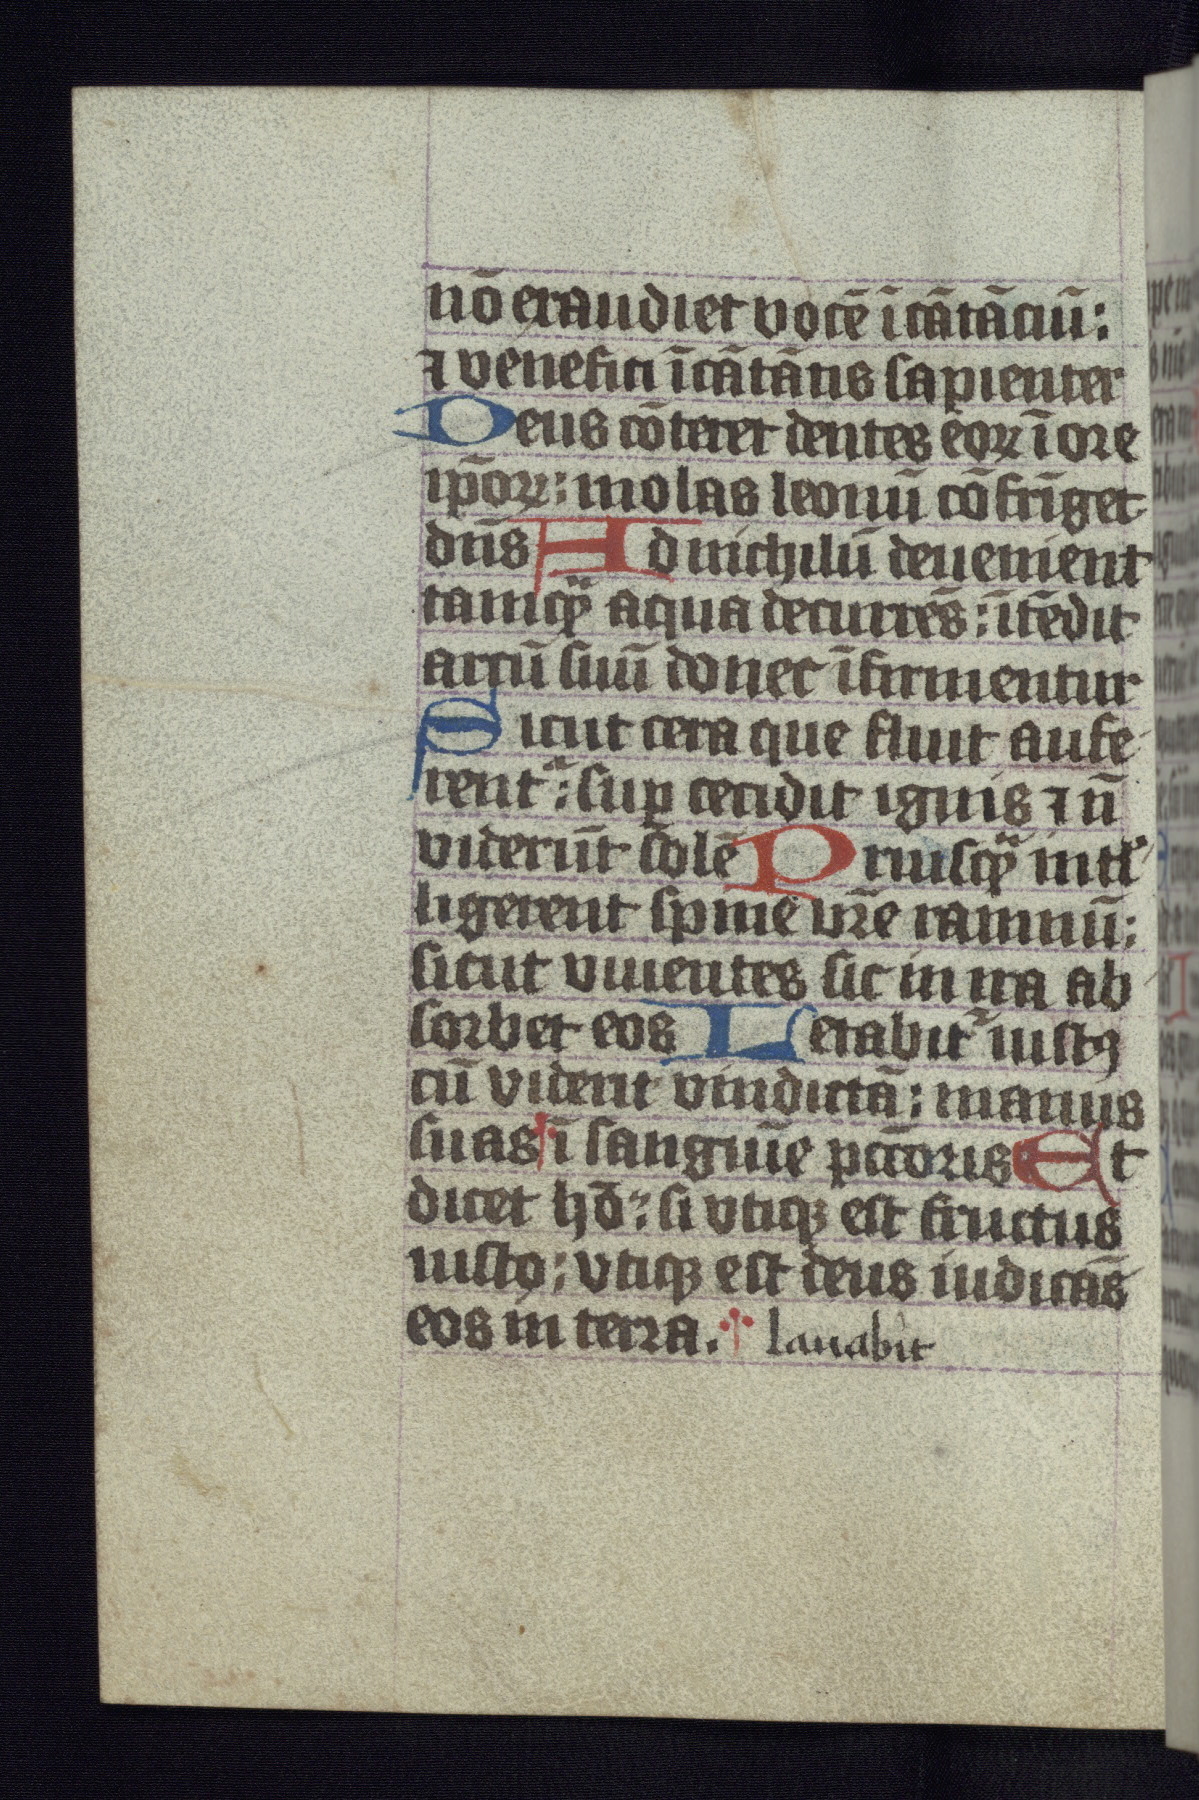 nō exaudiet vocē īcātāciū:
⁊ venefici īcātātis sapienter
Deus cōteret dentes eoꝝ ī ore
ip̄oꝝ: molas leonū cōfrīget
dn̄s Ad nichilū devenient
tamqᷓ aqua decurrēs: ītēdit
arcū suū donec īfirmentur
Sicut cera que fluit aufe
rentᷣ: suꝑ cecidit ignis ⁊ n̄
viderūt solē Priusqᷓ intel
ligerent spine vr̄e ramnū:
sicut viventes sic in ira ab
sorbet eos Letabitᷣ iustꝯ
cū viderit vindictā: manus
suas ī sanguīe pctōris Et
dicet hō: si vtiqꝫ est fructus
iusto: vtiqꝫ est deus iudicās
eos in terra. lauabit